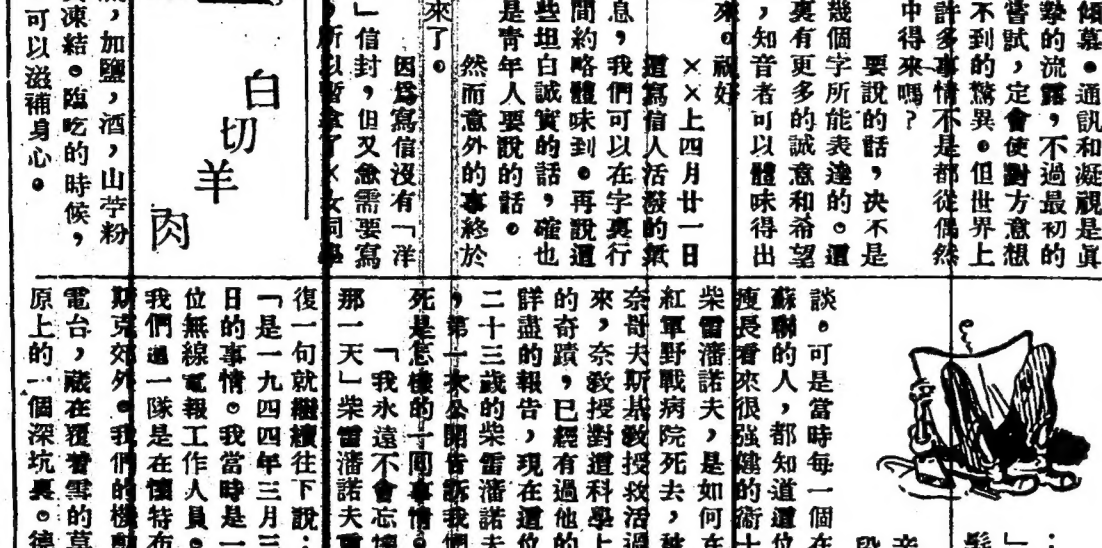 傾慕。通訊和凝視是眞
摯的流露，不過最初的
嘗試，定會使對方意想
不到的驚異。但世界上
許多事情不是都從偶然
中得來嗎？
要說的話，决不是
幾個字所能表達的。這
裏有更多的誠意和希望
，知音者可以體味得出
來。祝好
××上四月廿一日
這寫信人活潑的氣
息，我們可以在字裏行
間約略體味到。再說這
些坦白誠實的話，確也
是青年人要說的話。
然而意外的事終於
來了。
因爲寫信沒有「洋
」信封，但又急需要寫
，所以暫拿了×女同學
白切羊肉
，加鹽，酒，山芋粉
凍結。臨吃的時候，
可以滋補身心。
談。可是當時每一個在
蘇聯的人，都知道這位
瘦長看來很强健的衛士
柴雷潘諾夫，是如何在
紅軍野戰病院死去，被
奈哥夫斯基教授救活過
來，奈教授對這科學上
的奇蹟，已經有過他的
詳盡的報告，現在這位
二十三歲的柴雷潘諾夫
，第一次公開告訴我們
死是怎樣的一回事情。
「我永遠不會忘懷
那一天」柴雷潘諾夫重
復一句就繼續往下說：
「是一九四四年三月三
日的事情。我當時是一
位無線電報工作人員。
我們這一隊是在懷特布
斯克郊外。我們的機動
電台，藏在覆着雪的草
原上的一個深坑裏。德